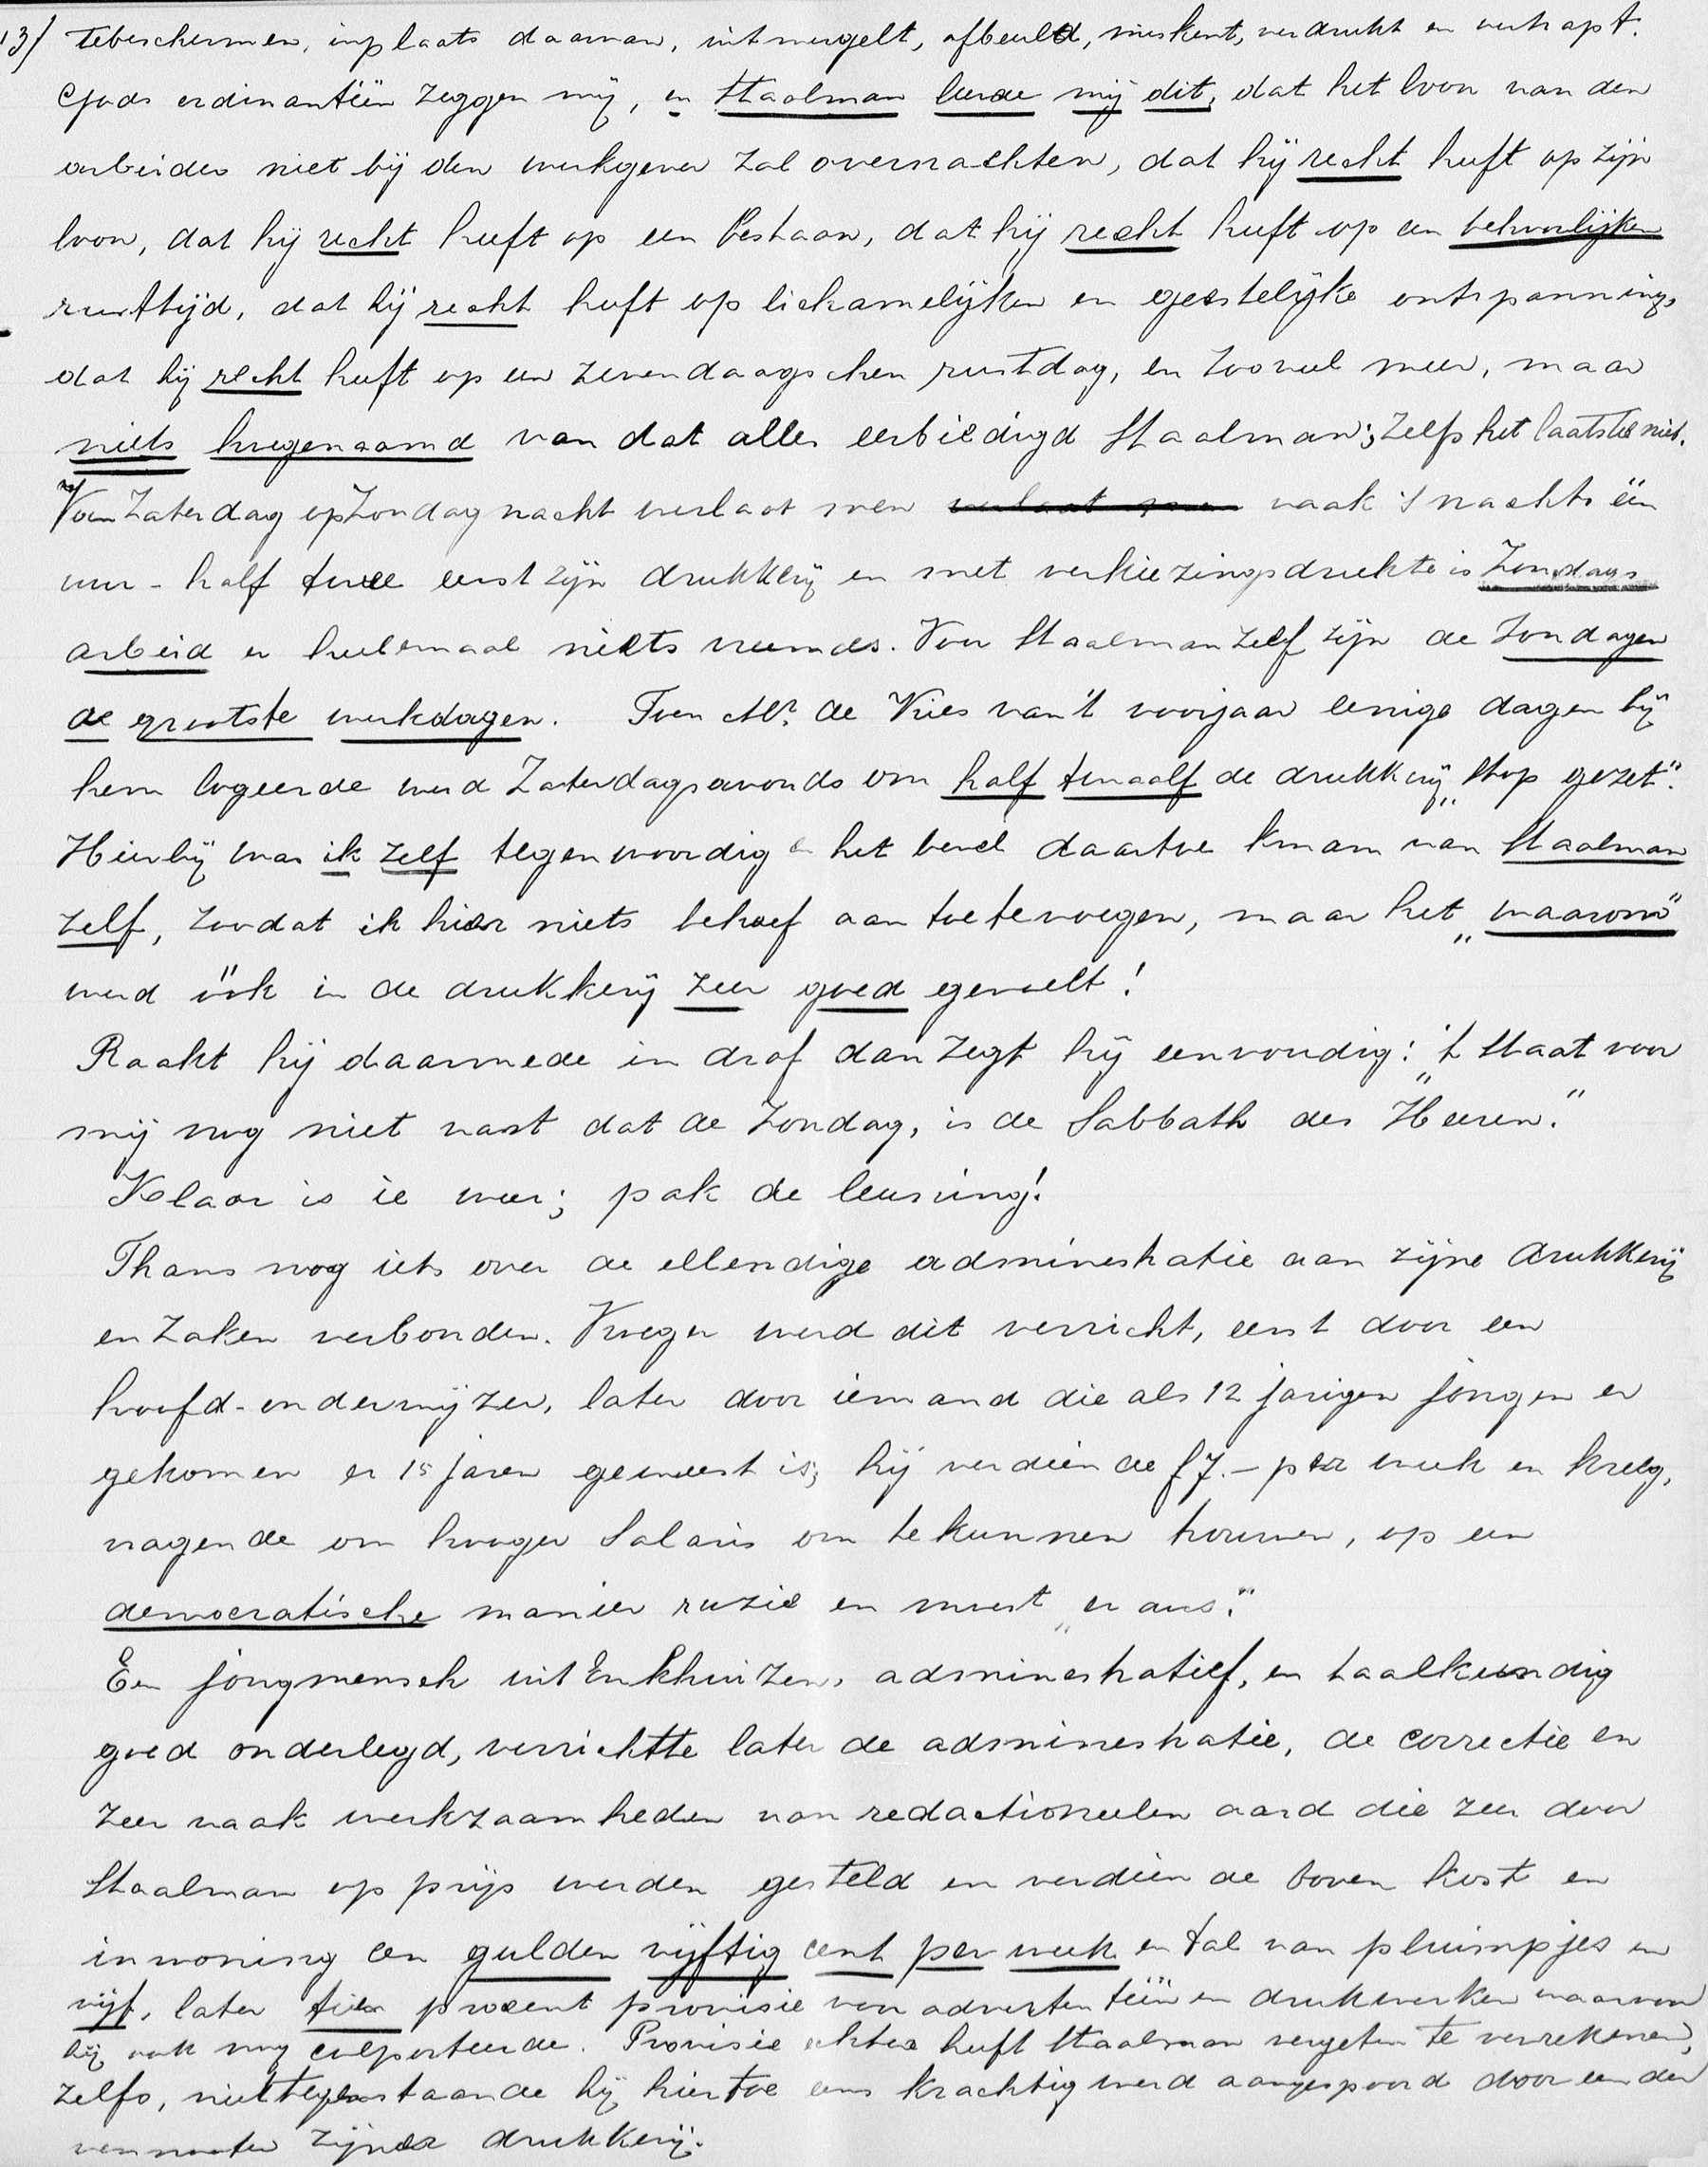 13/ tebeschermen, inplaats daarvan, uitmergelt, afbeuld, miskent, verdrukt en vertrapt.
Gods ordinantiën zeggen mij, en Staalman leerde mij dit, dat het loon van den
arbeider niet bij den werkgever zal overnachten, dat hij recht heeft op zijn
loon, dat hij recht heeft op een bestaan, dat hij recht heeft op een behoorlijken
rusttijd, dat hij recht heeft op lichamelijken en geestelijke ontspanning,
dat hij recht heeft op een zevendaagschen rustdag, en zooveel meer, maar
niets hoegenaamd van dat alles eerbiedigd Staalman; zelfs het laatste niet.
Van Zaterdag op Zondagnacht verlaat men verlaat men vaak 's nachts één
uur - half twee eerst zijn drukkerij en met verkiezingsdrukte is Zondags
arbeid er heelemaal niets vreemds. Voor Staalman zelf zijn de Zondagen
de grootste werkdagen. Toen Mr. de Vries van 't voorjaar eenige dagen bij
hem logeerde werd Zaterdagsavonds om half twaalf de drukkerij „stop gezet".
Hierbij was ik zelf tegenwoordig en het bevel daartoe kwam van Staalman
zelf, zoodat ik hier niets behoef aan toetevoegen, maar het „waarom"
werd óók in de drukkerij zeer goed gevoelt!
Raakt hij daarmede in draf dan zegt hij eenvoudig: „'t Staat voor
mij nog niet vast dat de Zondag, is de Sabbath des Heeren."
Klaar is ie weer; pak de leuning!
Thans nog iets over de ellendige admineshatie aan zijne drukkerij
en zaken verbonden. Vroeger werd dit verricht, eerst door een
hoofd-onderwijzer, later door iemand die als 12 jarigen jongen er
gekomen er 15 jaren geweest is; hij verdiende f 7.- per week en kreeg,
vragende om hooger Salaris om tekunnen trouwen, op een
democratische manier ruzie en moest „er aus."
Een jongmensch uit Enkhuizen, administratief, en taalkundig
goed onderlegd, verrichtte later de administratie, de correctie en
zeer vaak werkzaamheden van redactioneelen aard die zeer door
Staalman op prijs werden gesteld en verdiende boven kost en
inwoning een gulden vijftig cent per week en tal van pluimpjes en
vijf, later tien procent provisie van advertentiën en drukwerken waarvan
hij ook nog colporteerde. Provisie echter heeft Staalman vergeten te verrekenen,
zelfs, niettegenstaande hij hiertoe eens krachtig werd aangespoord door een der
vennooten zijner drukkerij.